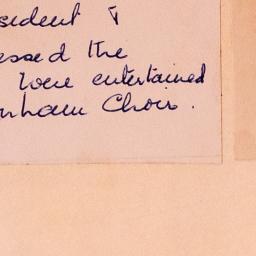 sident &
essed the
were entertained
nham Choir.